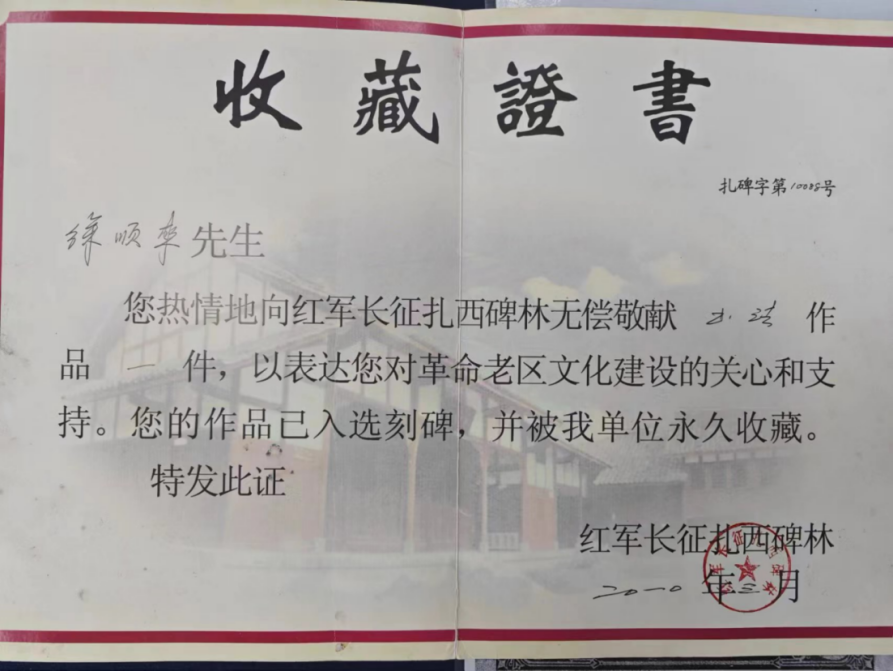 收藏證書
扎碑字第10088号
徐顺来先生
您热情地向红军长征扎西碑林无偿敬献 书法 作
品 一 件，以表达您对革命老区文化建设的关心和支
持。您的作品已入选刻碑，并被我单位永久收藏。
特发此证
红军长征扎西碑林
二〇一〇年三月